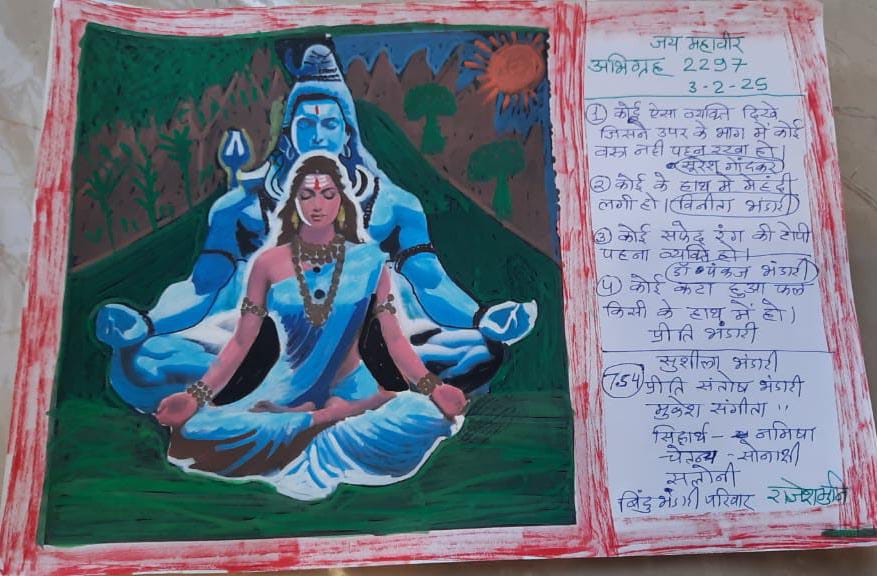 जय महावीर
अभिग्रह 2297
3-2-25
① कोई ऐसा व्यक्ति दिखे
जिसने उपर के भाग में कोई
वस्त्र नही पहन रखा हो।
सुरेश गोंदकर
② कोई के हाथ में मेहंदी
लगी हो। विनीता भंडारी
③ कोई सफेद रंग की टोपी
पहना व्यक्ति हो।
डॉ पंकज भंडारी
④ कोई कटा हुआ फल
किसी के हाथ में हो।
प्रीति भंडारी
सुशीला भंडारी
754 प्रीति संतोष भंडारी
मुकेश संगीता ''
सिद्दार्थ - नमिषा
चेतन्य - सोनाक्षी
सलोनी
बिंदु भंडारी परिवार राजेशमुनि